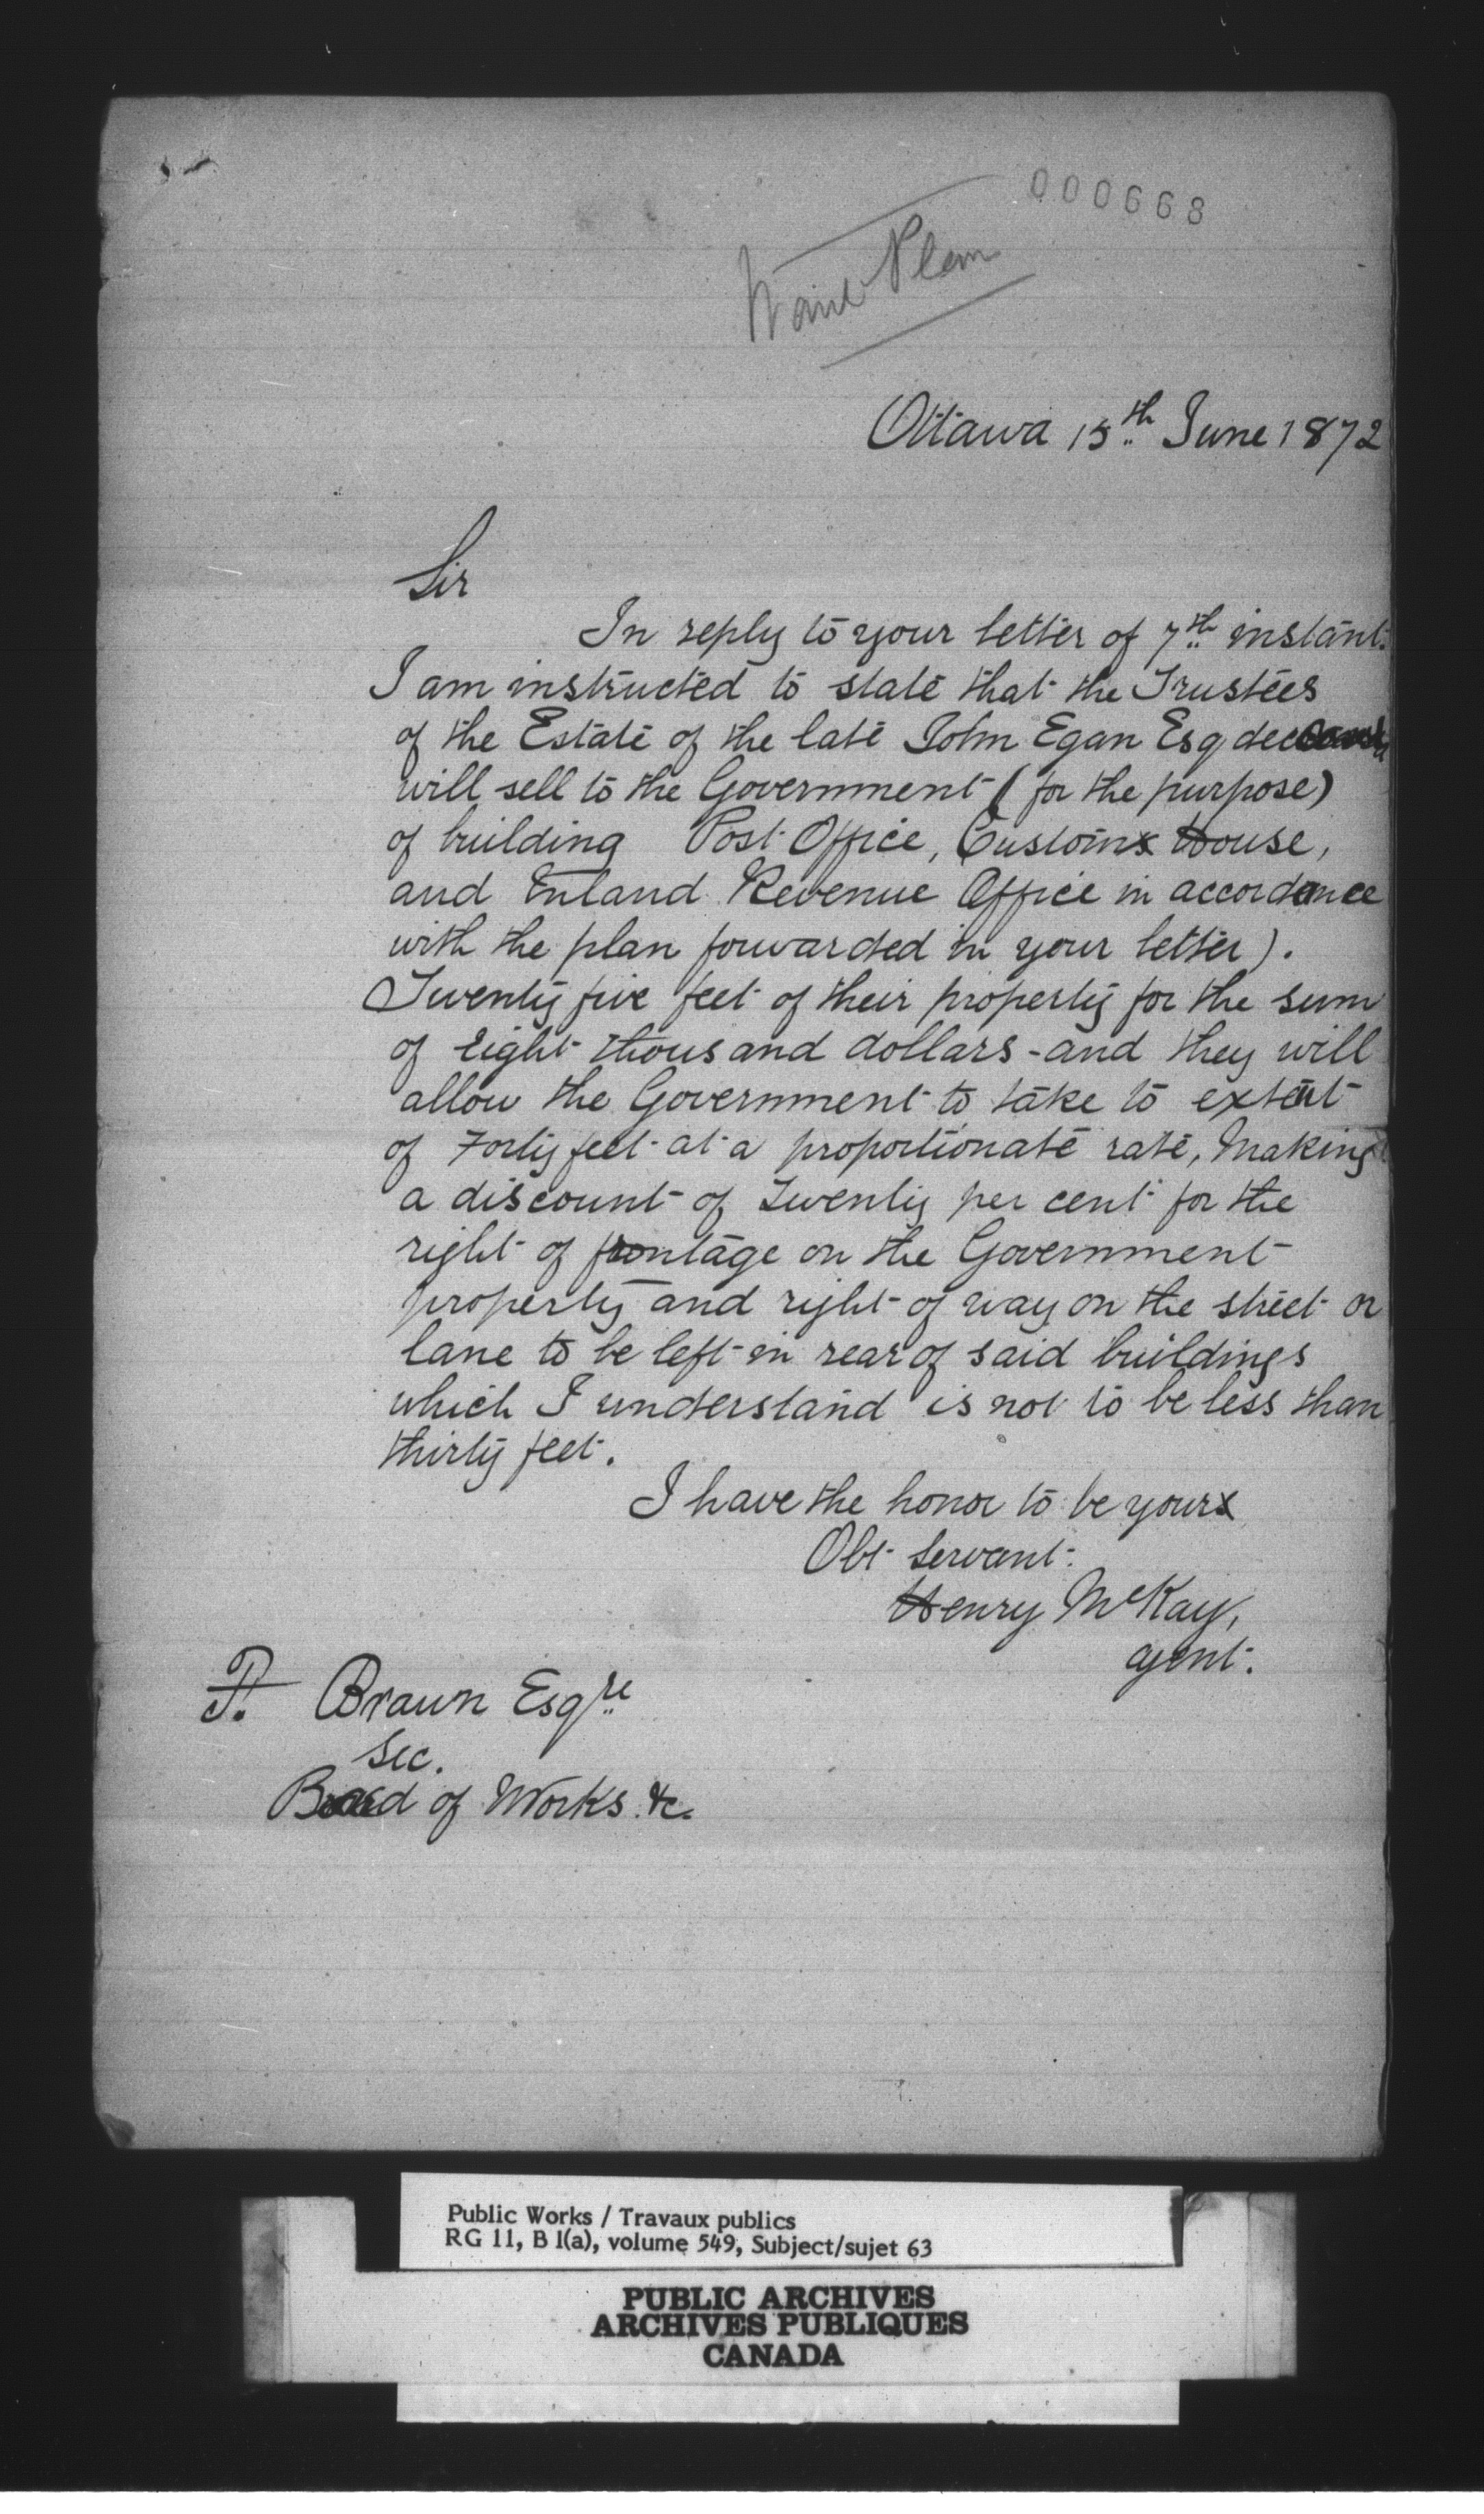 000668
Plan
Ottawa 15th June 1872
Sir
In reply to your letter of 7th instant.
I am instructed to state that the Trustees
of the Estate of the late John Egan Esq deceased
will sell to the Government (for the purpose)
of building Post Office, Customs House,
and Inland Revenue Office in accordance
with the plan forwarded in your letter).
Twenty five feet of their property for the sum
of eight thousand dollars - and they will
allow the Government to take to extent
of Forty feet at a proportionate rate, Making
a discount of Twenty per cent for the
right of frontage on the Government
property and right of way on the street or
lane to be left in rear of said buildings
which I understand is not to be less than
thirty feet.
I have the honor to be yours
Obt Servant.
Henry McKay,
agent.
F. Braun Esqre
Sec.
Board of Works &c.
Public Works / Travaux publics
RG 11, B 1(a), volume 549, Subject/sujet 63
PUBLIC ARCHIVES
ARCHIVES PUBLIQUES
CANADA